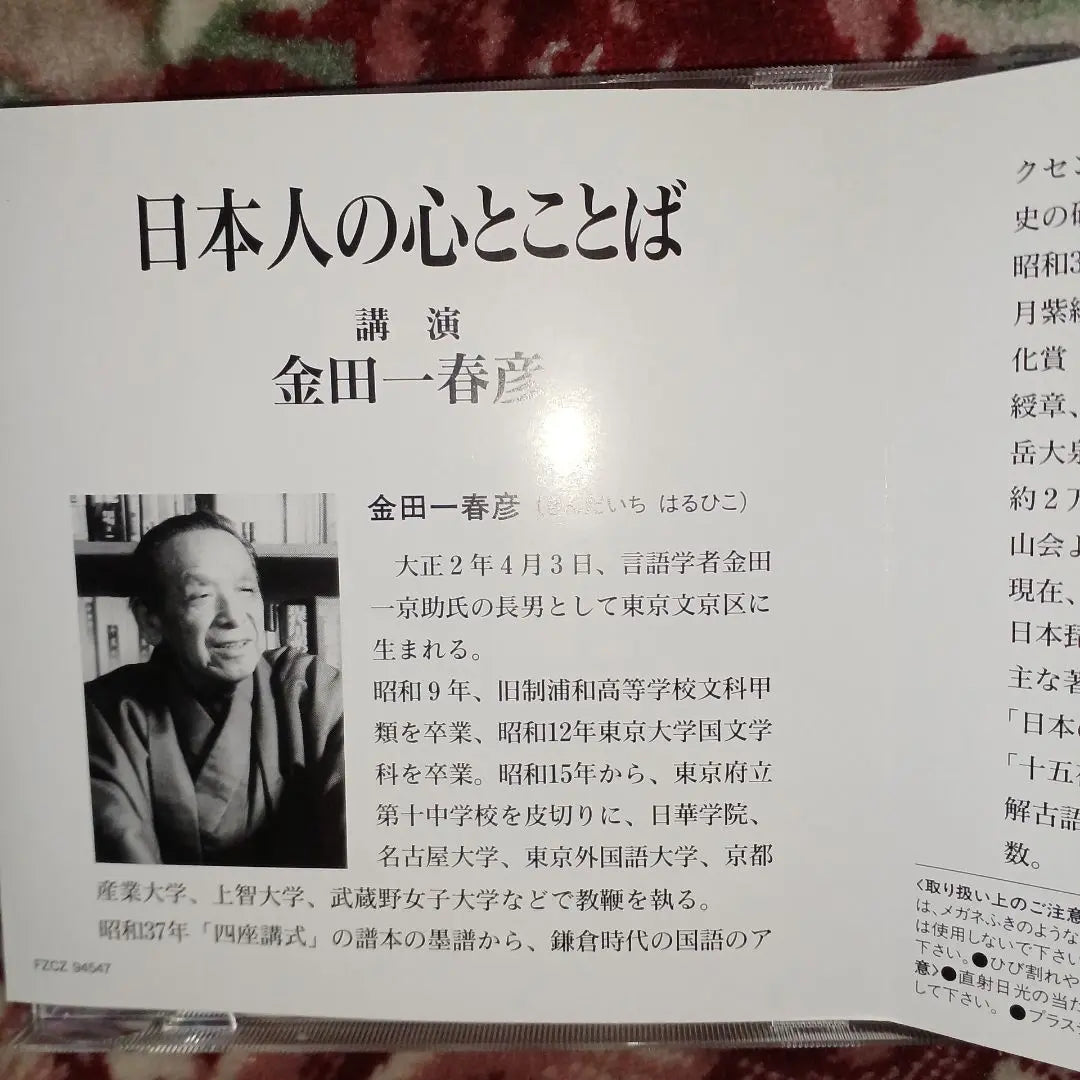 日本人の心とことば
講 演
金田一春彦
金田一春彦(きんだいち はるひこ)
大正2年4月3日、言語学者金田
一京助氏の長男として東京文京区に
生まれる。
昭和9年、旧制浦和高等学校文科甲
類を卒業、昭和12年東京大学国文学
科を卒業。昭和15年から、東京府立
第十中学校を皮切りに、日華学院、
名古屋大学、東京外国語大学、京都
産業大学、上智大学、武蔵野女子大学などで教鞭を執る。
昭和37年「四座講式」の譜本の墨譜から、鎌倉時代の国語のア
FZCZ 94547
クセン
史の研
昭和3
月紫綬
化賞
綬章、
岳大
約2万
山会
現在、
日本琵
主な著
「日本
「十五
解古語
数。
〈取り扱い上のご注意
は、メガネふきのような
は使用しないで下さい
下さい。●ひび割れや
意〉●直射日光の当た
して下さい。●プラス